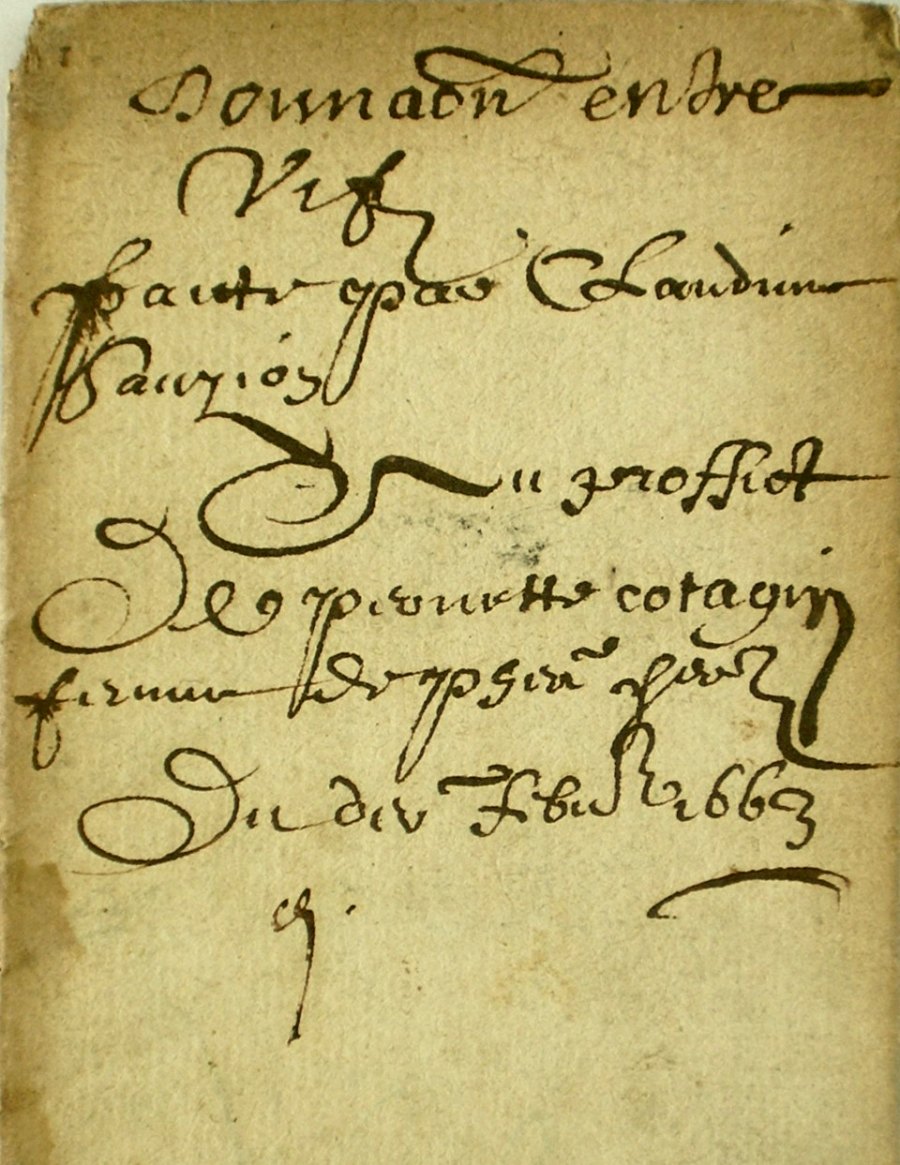 Donnaōn entre
Vifz
faicte par Claudine
Sauzion
Au proffict
De pernette cotagin
femme de
Du der Febur 1663